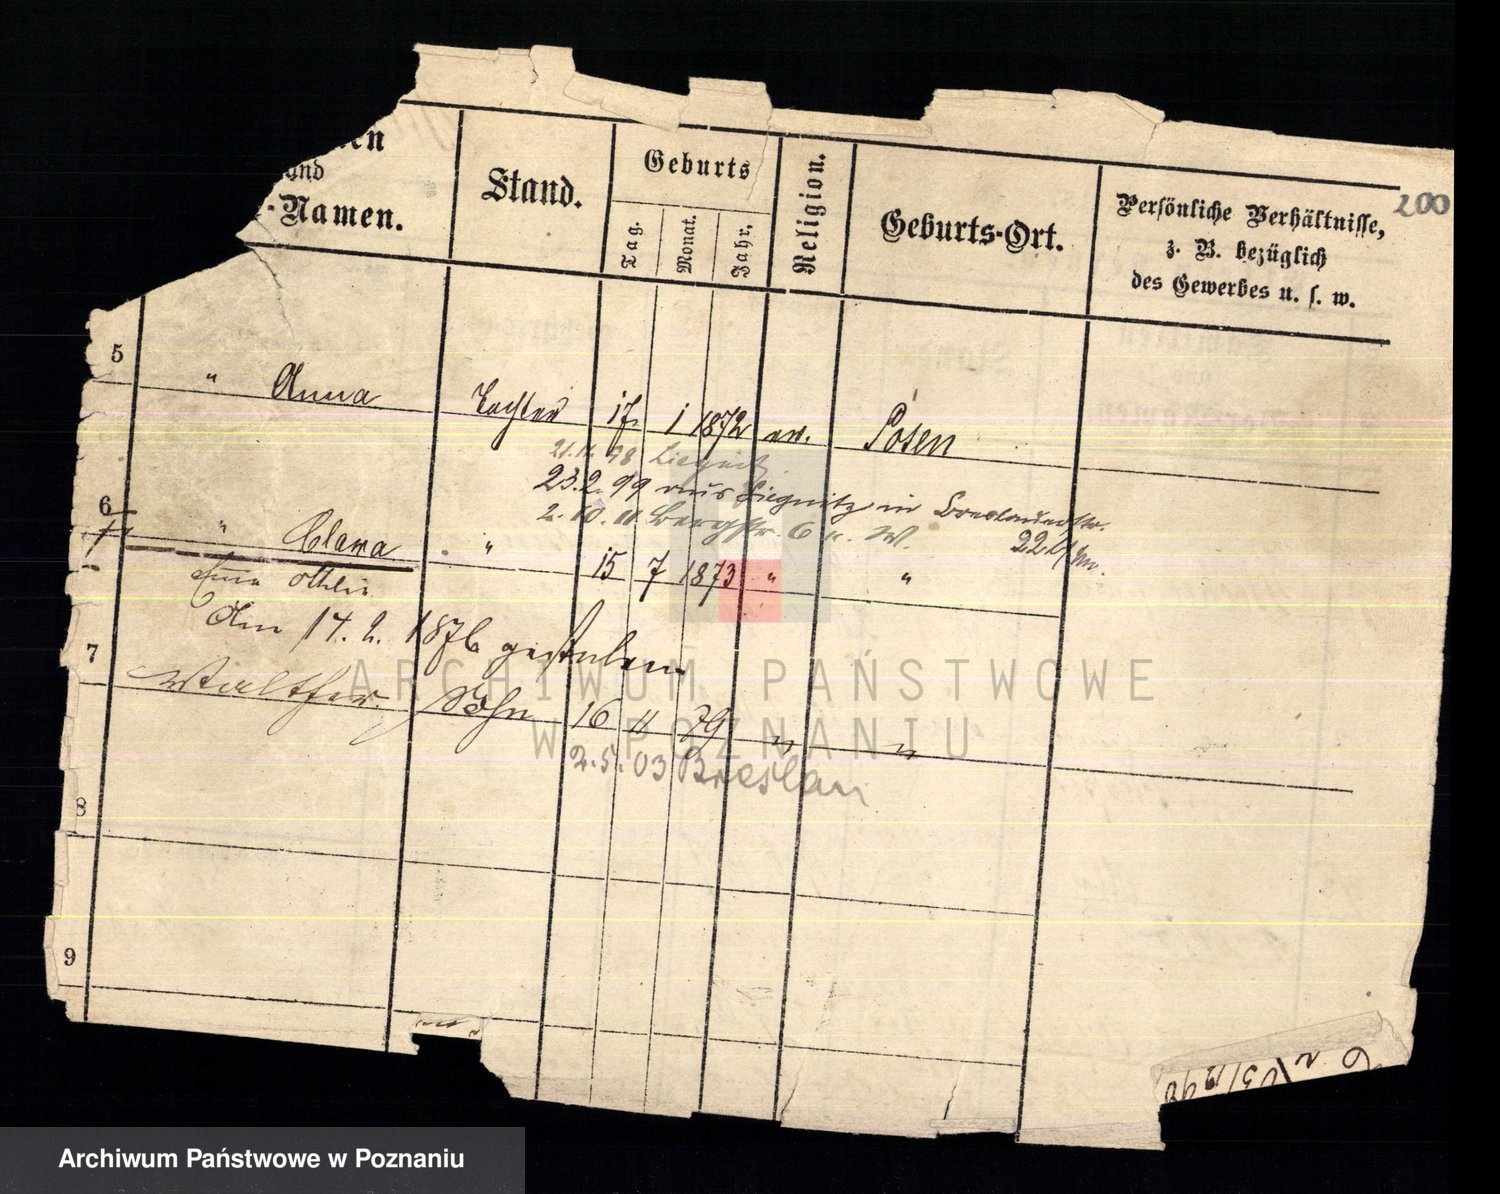 en
und
-Namen.
Stand.
Geburts
Tag.
Monat.
Jahr.
Religion.
Geburts-Ort.
Persönliche Verhältnisse,
z. B. bezüglich
des Gewerbes u. s. w.
200
5 " Anna Tochter 17. 1 1872 ev. Posen
21.11.98 Liegnitz
23.2.99 aus Liegnitz in Breslauerstr.
2.10. Bergstr. 6 W. 22
6 " Clara " 15 7 1873 " "
Am 14. 2. 1876 gestorben
7 Walther Sohn 16 11 79 " "
2.5.03 Breslau
8
9
ARCHIWUM PAŃSTWOWE
W POZNANIU
Archiwum Państwowe w Poznaniu